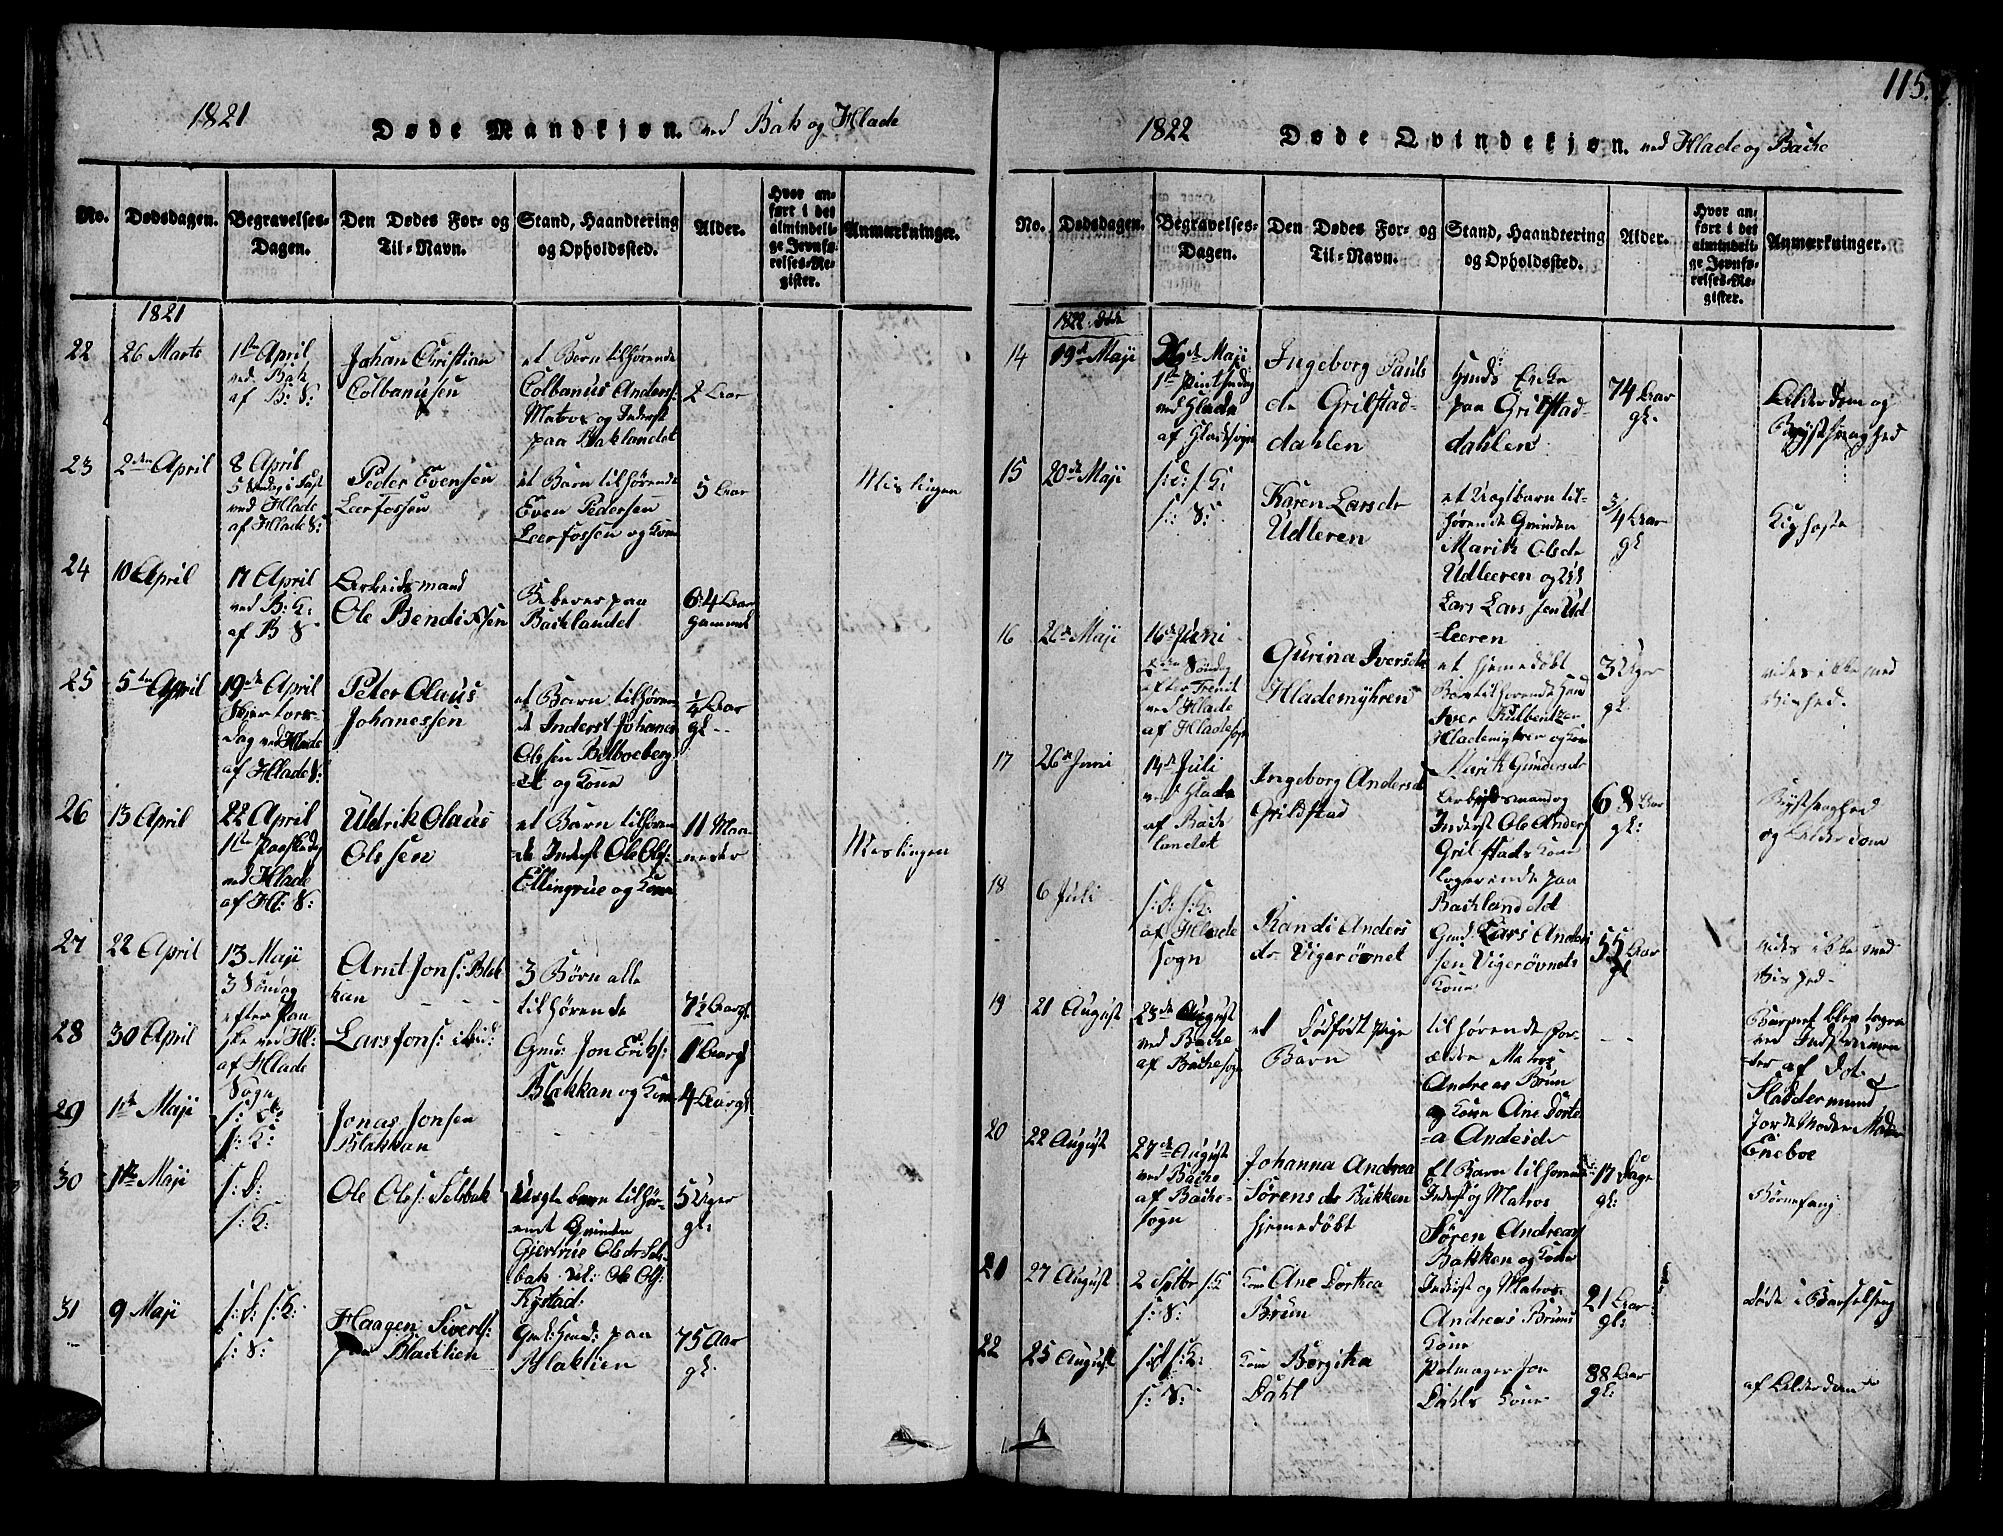 1821
Døde Mandkjøn. ved Bak og Hlade
No.
Dødsdagen.
Begravelses-
Dagen.
Den Dødes For- og
Til-Navn.
Stand, Haandtering
og Opholdssted.
Alder.
Hvor an-
ført i det
almindeli-
ge Jevnfø-
relses-Re-
gister.
Anmærkninger.
1821
22
26 Marts
1ste April
ved Bak
af B: S:
Johan Christian
Colbanussen
et Barn tilhørende
Colbanus Anders:
Matros og Inderst
paa Baklandet
2 Aar
23
2den April
8 April
5 Søndag i Fast
ved Hlade
af Hlade S:
Peder Evensen
Leerfossen
et Barn tilhørende
Even Pedersen
Leerfossen og Kone
5 Aar
Meslingen
24
10 April
17 April
ved B: K:
af B S
Arbeidsmand
Ole Bendixsen
Beboer paa
Backlandet
64 Aar
gammel
25
5te April
19de April
Skjertors-
dag ved Hlade
af Hlade S:
Peter Olaus
Johanessen
et Barn tilhøren-
de Inderst Johanes
Olssen
og Kone
1/4 Aar
gl.
26
13 April
22 April
1ste Paaskedag
ved Hlade
af Hl: S:
Uldrik Olaus
Olssen
et Barn tilhøren
de Inderst Ole Ols:
Ellingrue og Kone
11 Maa
neder
Meslingen
27
22 April
13 Maji
3 Søndag
efter Paa
ske ved Hl:
af Hlade
Sogn
Arnt Jons: Blak
kan
3 Børn alle
tilhørende
7½ Aar gl
28
30 April
Lars Jons: ibid:
Gmd: Jon Eriks:
Blakkan og Kone
11 Aar gl
29
1ste Maji
s: D:
s: K:
Jonas Jonsen
Blakkan
4 Aar gl
30
1ste Maji
s: D:
s: K:
Ole Ols: Selsbak
Uægte barn tilhør-
ende Qvinden
Gjertrue Olsdr Sels
bak Ole Ols:
Rystad:
5 Uger
gl:
31
9 Maji
s: D: s: K:
s: S:
Haagen Siverts:
paa Blaklien
Gmd: Kone: paa
Blaklien
75 Aar
gl:
115.
1822
Døde Qvindekjøn. ved Hlade og Bache
No.
Dødsdagen.
Begravelses-
Dagen.
Den Dødes For- og
Til-Navn.
Stand, Haandtering
og Opholdssted.
Alder.
Hvor an-
ført i det
almindeli-
ge Jevnfø-
relses-Re-
gister.
Anmærkninger.
1822 Døde
14
19de Maji
26de Maji
1ste Pintsedag
ved Hlade
af Hladesogn
Ingeborg Pauls
dr Grilstad-
dahlen
Husmds Enke
paa Grilstad-
dahlen
74 Aar
gl.
Alderdom og
Brystsvaghed
15
20de Maji
s: d: s: K:
s: S:
Karen Larsdr
Udleren
et Uægtbarn til-
hørende Qvinden
Marit Olsdr
Udleeren og
Lars Larssen Ud
-leeren
3/4 Aar
gl
Kighoste
16
26de Maji
16de Juni
2den Søndag
efter Trenit
ved Hlade
af Hladesogn
Gurina Iversdr
Hlademyhren
et hjemedøbt
Barn tilhørende Hmd
Iver
Hlademyhren og Kone
Marit Gundersdr
3 Uger
gl:
vides ikke med
Vished.
17
26de Juni
14de Juli
ved Hlade
af Back
landet
Ingeborg Andersdr
Grildstad
Arbejdsmand og
Inderst Ole Anders
Grilstads Kone
logerende paa
Backlandet
68 Aar
gl:
Brystsvaghed
og Alderdom
18
6 Juli
s: D: s: K:
af Hlade
Sogn
Randi Anders
dr Vigerøvnet
Gmd Lars Anders
sen Vigerøvnets
Kone
55 Aar
gl
vides ikke med
Vished.
19
21 August
25de August
ved Bache
af Bachesogn
et Dødfødt Pige
Barn
tilhørende For-
ældre Matros
Andreas Brun
og Kone Ane Dorte
-a Andeisdr
Barnet blev tagen
ved Instrumen
ter af Dok.
Jordemoder Mad
Eneboe
20
22 August
27de August
ved Bache
af Bache-
sogn
Johanna Andrea
Sørensdr Bakken
hjemedøbt
Et Barn tilhørende
Inderst og Matros
Søren Andreas
Bakken og Kone
17 Dage
gl:
Børnefang:
21
27 August
2 Sptbr s: K
s: S:
Kone Ane Dorthea
Brun
Inderst og Matros
Andreas Bruns
Kone
21 Aar
gl:
døde i Barselseng
22
25 August
s: d s: K:
s: S:
Kone Bergitha
Dahl
Pelmager Jon
Dahls Kone
88 Aar
gl:
af Alderdom